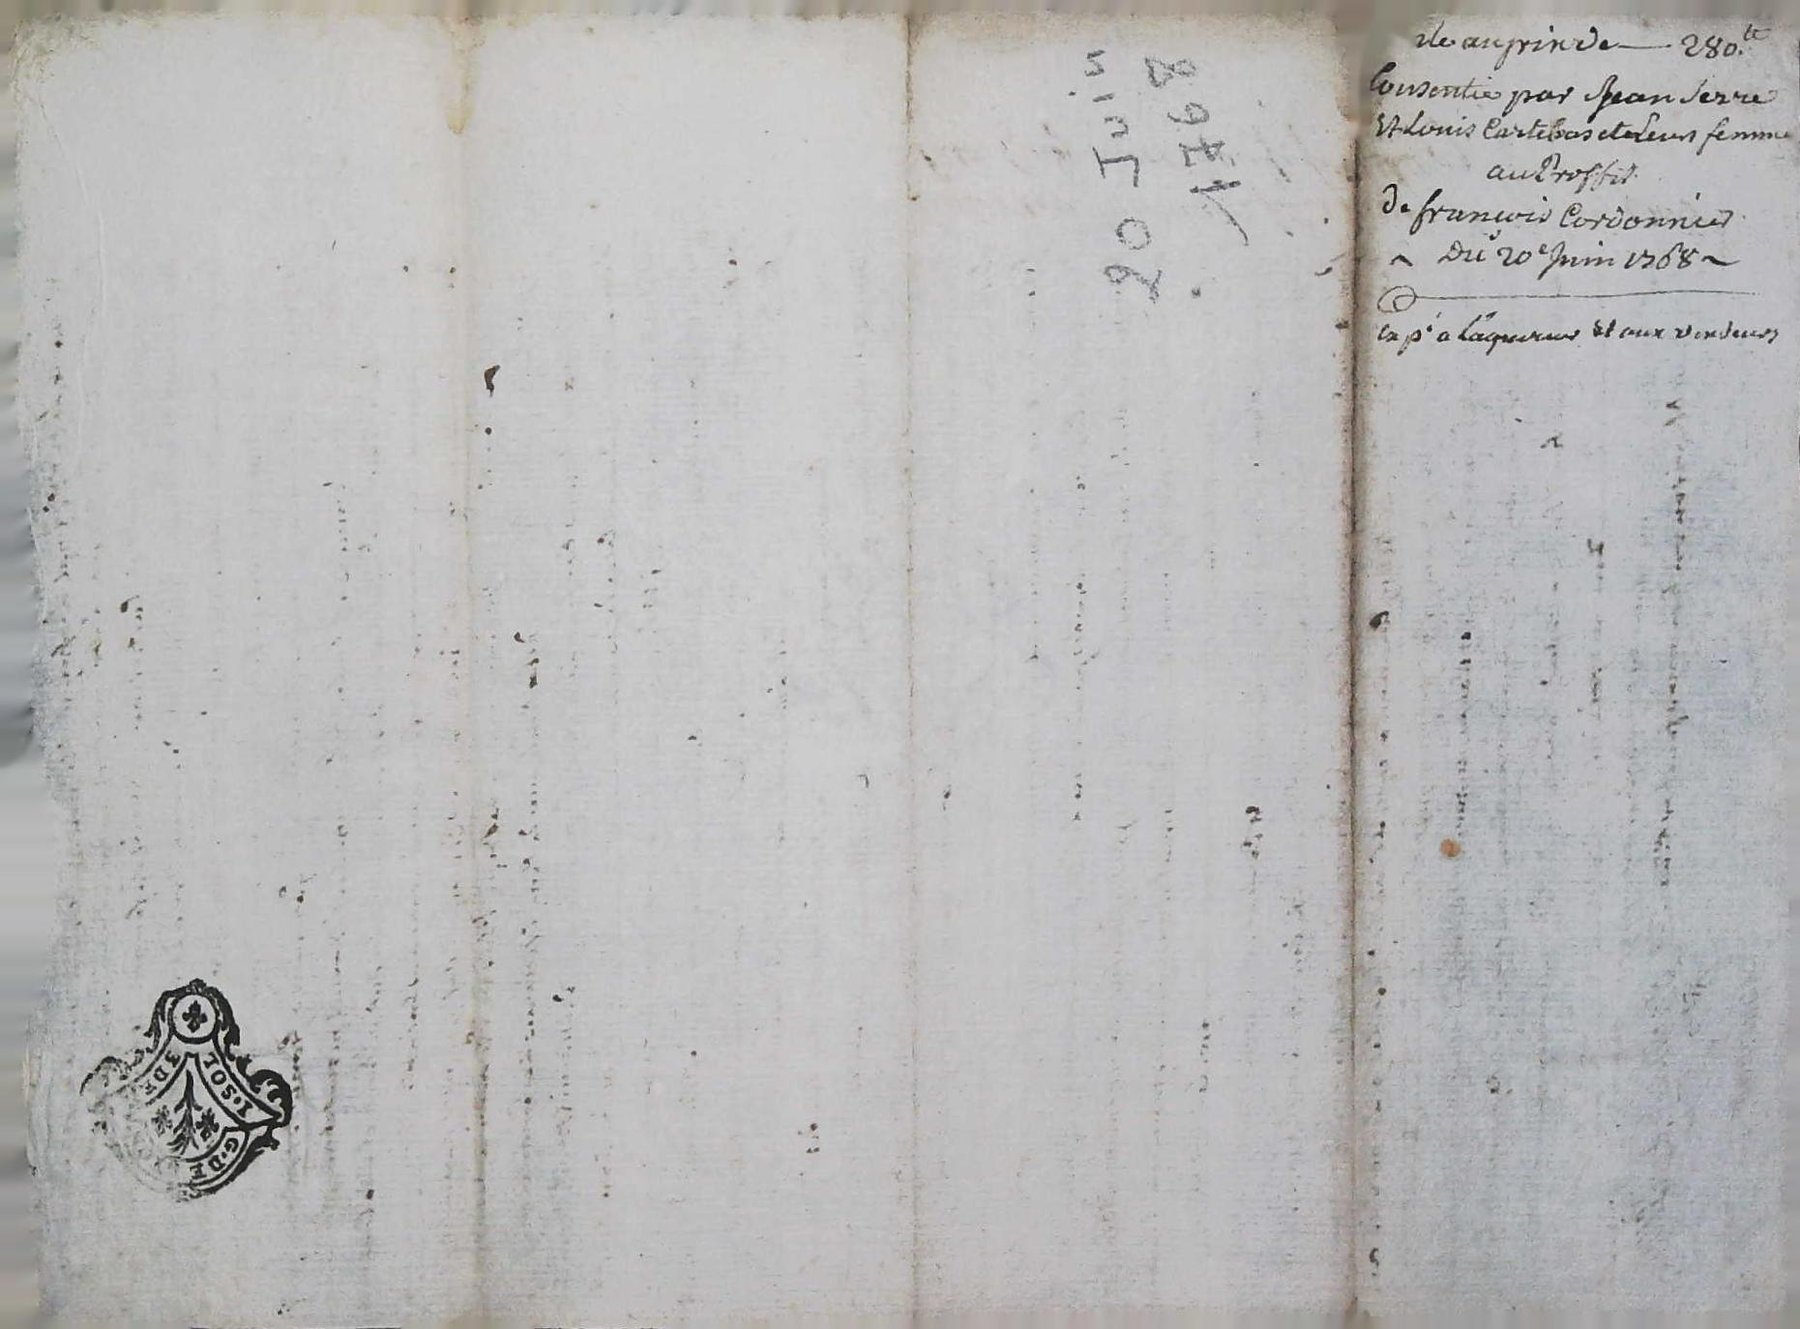 au prix de — 280.lt
Consentie par Jean Serre
Et Louis et Leurs femme
au Proffit
De françois Cordonnier
~ Du 20e Juin 1768 ~
Exp. a Laquereur Et aux vendeurs
20 Juin
1768
I. SOL
3 DE
G. DE